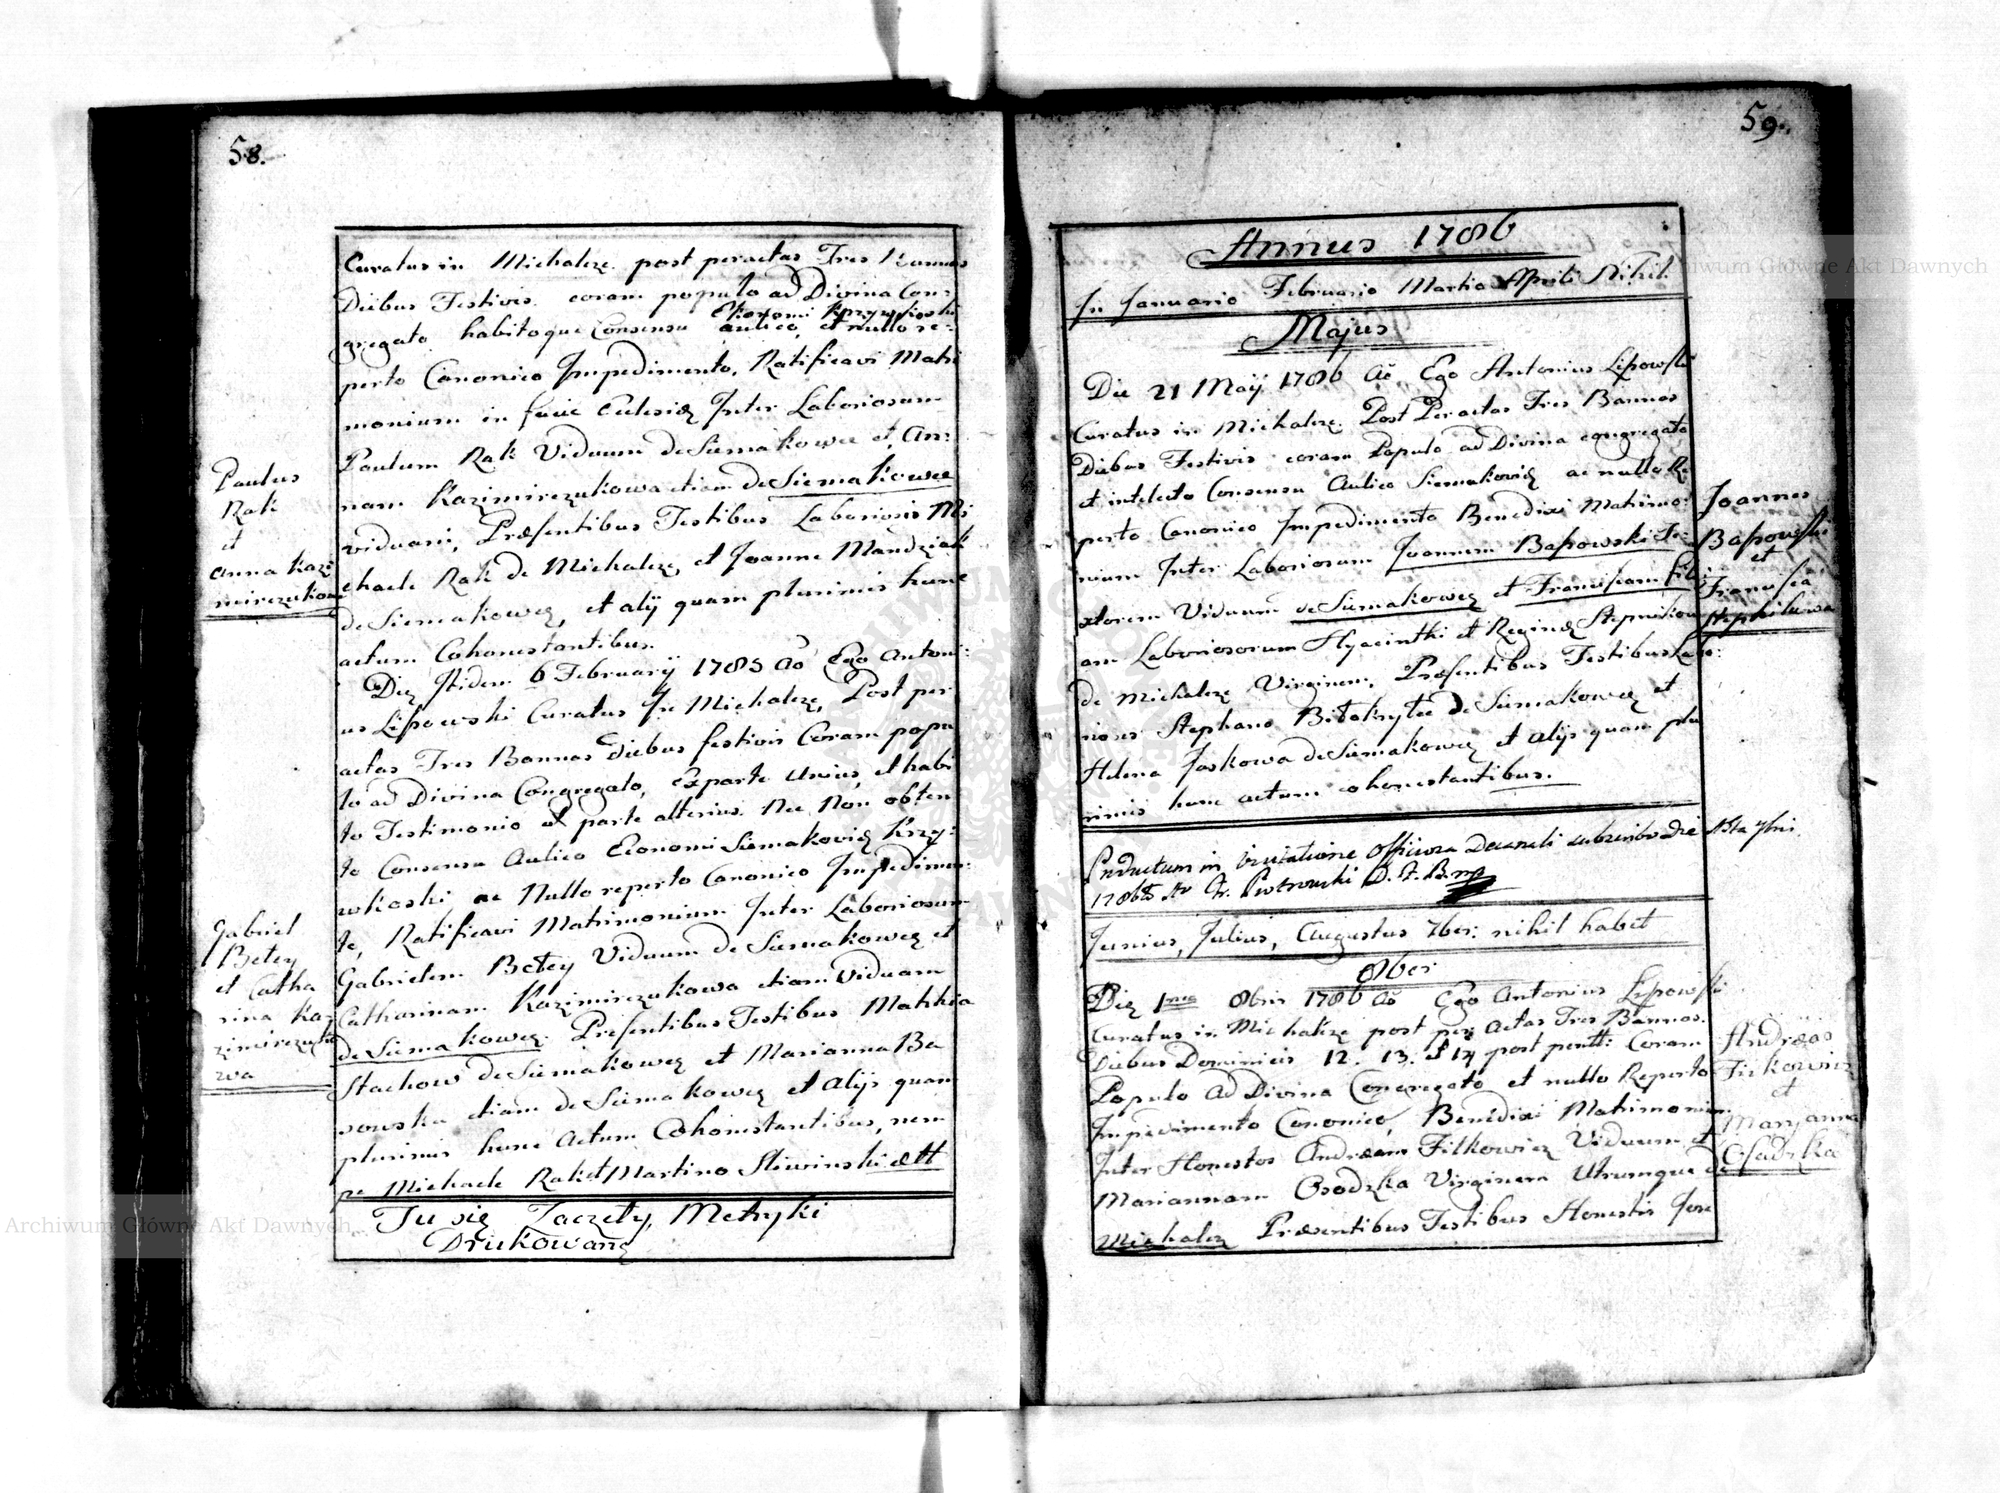 58.
Curatus in Michalcze post peractas Tres Bannos
Diebus Festivis coram populo ad Divina Con=
gregato habitoque Consensu Ekonomi
aulico, et nullo re=
perto Canonico Impedimento, Ratificavi Matri
monium in facie Eclesiæ Inter Laboriosum
Paulum Rak Viduum de Siemakowce et An=
nam Kazimirczukowa etiam de Siemakowce
viduam, Præsentibus Testibus Laboriosis Mi
chaele Rak de Michalcze, et Joanne Mandziak
de Siemakowcę, et alÿ quam plurimis hunc
actum Cohonestantibus.
Paulus
Rak
et
Anna Kazi
mirczukowa
Die Itidem 6 Februarÿ 1785 Ao Ego Antoni=
us Lipowski Curatus In Michalcze, Post per
actas Tres Bannos diebus festivis Coram popu
lo ad Divina Congregato, ex parte unius, et habi
to Testimonio ex parte alterius. Nec Non obten
to Consensu Aulico Economi Siemakoviæ Krzy=
wkoski ac Nullo reperto Canonico Impedimen=
to, Ratificavi Matrimonium Inter Laboriosum
Gabrielem Bełey Viduum de Siemakowcę et
Catharinam Kazimirczukowa etiam Viduam
de Siemakowcę. Presentibus Testibus Mathia
Stachow de Siemakowcę et Marianna Ba
sowska etiam de Siemakowcę et Alijs quam
plurimis hunc Actum Cohonestantibus, nem
pe Michaele Rak et Martino Sliwinski aett
Gabriel
Bełey
et Catha
rina Ka
zimirczuko
wa
Tu się Zaczęły Metryki
Drukowane
59.
Annus 1786
In Januario Februario Martio Aprili Nihil
Majus
Die 21 Maÿ 1786 Ao Ego Antonius Lipowski
Curatus in Michalcze Post Peractas Tres Bannos
Diebus Festivis coram Populo ad Divina congregato
et intelecto Consensu Aulico Siemakoviæ ac nullo Re
perto Canonico Impedimento Benedixi Matrimo=
nium Inter Laboriosum Joannem Basowski Te=
xtorem Viduum de Siemakowcę et Franciscam fili=
am Laboriosorum Hyacinthi et Reginæ
de Michalcze Virginem, Præsentibus Testibus Labo=
riosis Stephano de Siemakowcę et
Helena Jaskowa de Siemakowcę et Alijs quam plu
rimis hunc actum cohonestantibus.
Joannes
Basowski
et
Francisca
Inductum in visitatione Officiosa Decanali subscribo die 7bris
1786 Piotrowski
Junius, Julius, Augustus 7ber: nihil habet
8ber
Die 1ma 8bris 1786 Ao Ego Antonius Lipowski
Curatus in Michalcze post per actas Tres Bannos.
Diebus Dominicis 12. 13. et 14 post pentt: Coram
Populo Ad Divina Congregato et nullo Reperto
Impedimento Canonico, Benedixi Matrimonium
Inter Honestos Andræam Filkowicz Viduum et
Mariannam Osadzka Virginem Utrumque de
Michalcz Præsentibus Testibus Honestis
Andræas
Filkowicz
et
Maryanna
Osadzka
Archiwum Główne Akt Dawnych
Archiwum Główne Akt Dawnych